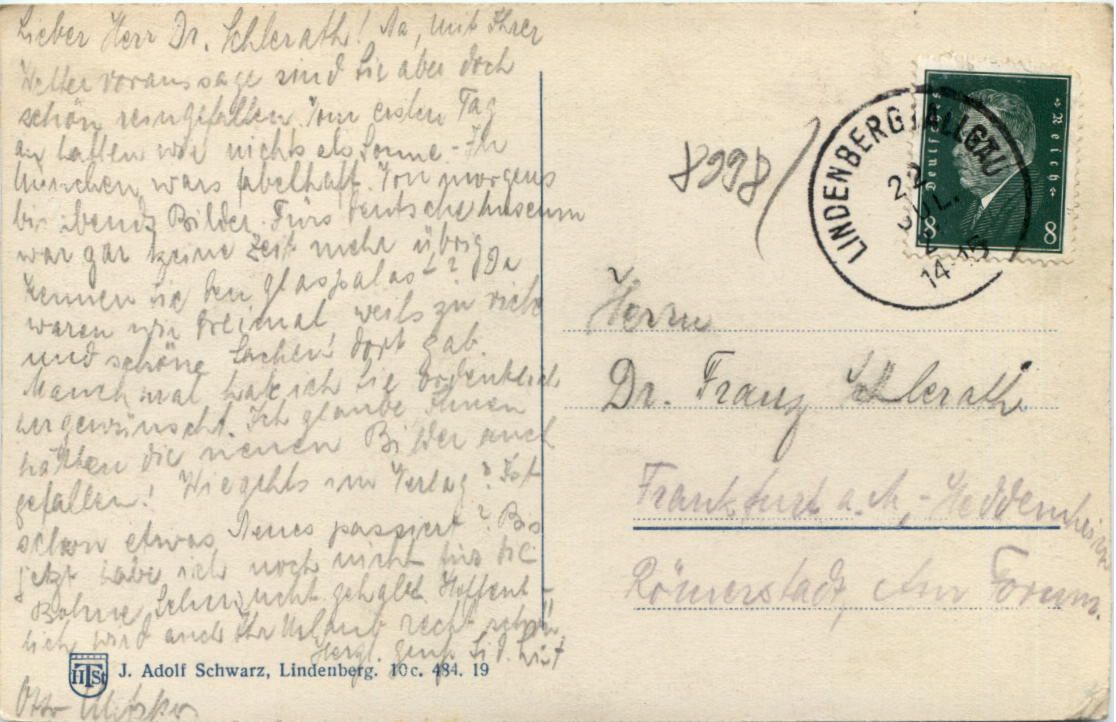 Lieber Herr Dr. Schlerath! Na, mit Ihrer
Wettervoraussage sind Sie aber doch
schön reingefallen. Vom ersten Tag
an hatten wir nichts als Sonne. - In
München wars fabelhaft. Von morgens
bis abends Bilder. Fürs deutsche Museum
war gar keine Zeit mehr übrig.
Kennen Sie den Glaspalast? Da
waren wir dreimal, weils zu viele
und schöne Sachen dort gab.
Manchmal hab ich Sie ordentlich
hergewünscht. Ich glaube Ihnen
hätten die neuen Bilder auch
gefallen! Wie gehts im Verlag? Ist
schon etwas Neues passiert? Bis
jetzt habe ich noch nicht für die
Sehnsucht gehabt. Hoffent-
lich wird auch Ihr Urlaub recht schön.
Herzl.
Otto
HTSt
J. Adolf Schwarz, Lindenberg. 10 c. 484. 19
8998
LINDENBERG (ALLGÄU
22.
JUL.
14-15
Deutsches Reich
8 8
Herrn
Dr. Franz Schlerath
Frankfurt a. M.-Heddernheim
Römerstadt, Am Forum.